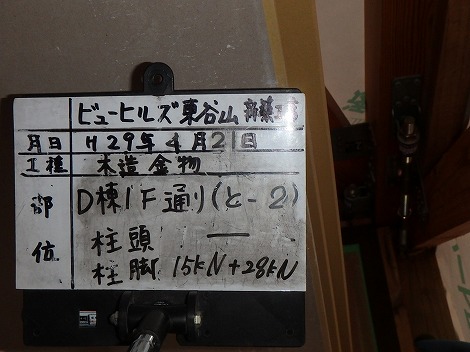 ビューヒルズ東谷山 新築工事
月日 H29年4月21日
工種 木造金物
部位 D棟1F通り(と-2)
柱頭 ―
柱脚 15kN+28kN